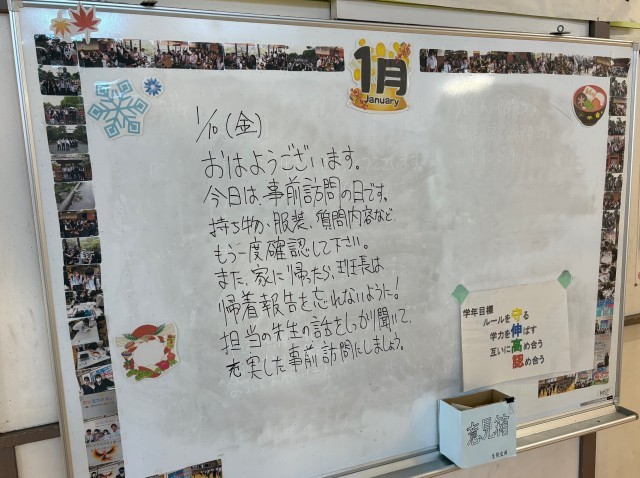 1月
January
1/10(金)
おはようございます。
今日は、事前訪問の日です。
持ち物、服装、質問内容など
もう一度確認して下さい。
また、家に帰ったら、班長は
帰着報告を忘れないように!
担当の先生の話をしっかり聞いて、
充実した事前訪問にしましょう。
学年目標
ルールを守る
学力を伸ばす
互いに高め合う
認め合う
意見箱